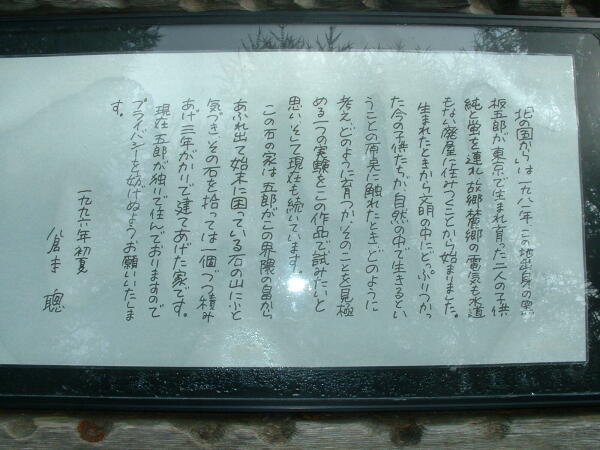 「北の国から」は一九八一年、この地出身の黒
板五郎が東京で生まれ育った二人の子供
純と蛍を連れ、故郷麓郷の電気も水道
もない廃屋に住みつくことから始まりました。
生まれたときから文明の中にどっぷりつかっ
た今の子供たちが、自然の中で生きるとい
うことの原点に触れたとき、どのように
考え、どのように育つか、そのことを見極
める一つの実験をこの作品で試みたいと
思い、そして現在も続いています。
この石の家は、五郎がこの界隈の畠から
あふれ出て始末に困っている石の山にふと
気づき、その石を拾っては一個づつ積み
あげ、三年がかりで建てあげた家です。
現在五郎が独りで住んでおりますので
プライバシーを妨げぬようお願いいたしま
す。
一九九六年 初夏
倉本 聰